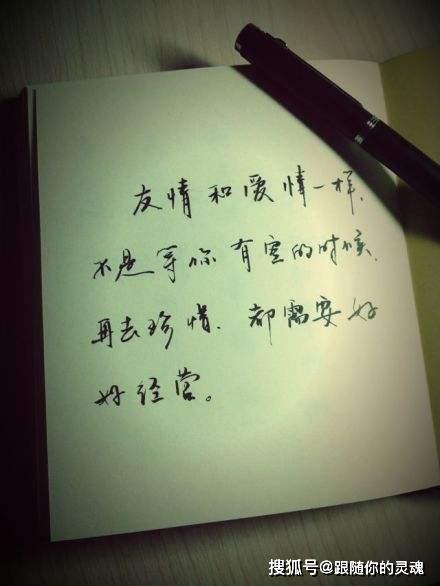 友情和爱情一样,
不是等你有空的时候,
再去珍惜.都需要好
好经营。
搜狐号@跟随你的灵魂